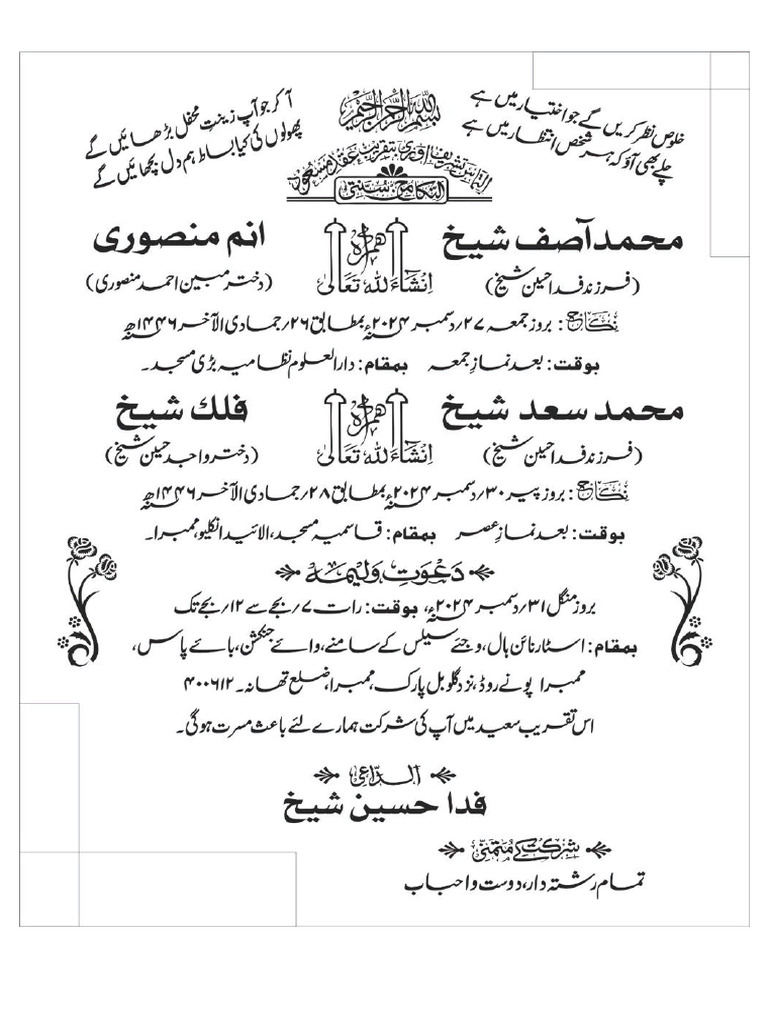 بسم الله الرحمن الرحیم
خلوص نظر کریں گے جو اختیار میں ہے
چلے بھی آؤ کہ ہر شخص انتظار میں ہے
آکر جو آپ زینت محفل بڑھائیں گے
پھولوں کی کیا بساط ہم دل بچھائیں گے
التماس تشریف آوری بتقریب عقد مسعود
النکاح من سنتی
محمد آصف شیخ ہمراہ انم منصوری
(فرزند فدا حسین شیخ) اِنْشَاءَ اللہ تَعَالٰی (دختر مبین احمد منصوری)
نکاح : بروز جمعہ ۲۷/ دسمبر ۲۰۲۴ء بمطابق ۲۶/ جمادی الآخر ۱۴۴۶ھ
بوقت : بعد نمازِ جمعہ بمقام : دارالعلوم نظامیہ بڑی مسجد۔
محمد سعد شیخ ہمراہ فلک شیخ
(فرزند فدا حسین شیخ) اِنْشَاءَ اللہ تَعَالٰی (دختر واجد حسین شیخ)
نکاح : بروز پیر ۳۰/ دسمبر ۲۰۲۴ء بمطابق ۲۸/ جمادی الآخر ۱۴۴۶ھ
بوقت : بعد نمازِ عصر بمقام : قاسمیہ مسجد، الائیڈ انکلیو، ممبرا۔
دعوتِ ولیمہ
بروز منگل ۳۱/ دسمبر ۲۰۲۴ء، بوقت : رات ۷/ بجے سے ۱۲/ بجے تک
بمقام : اسٹار نائن ہال، وجئے سیلس کے سامنے، وائے جنکشن، بائے پاس،
ممبرا پونے روڈ، نزد گلوبل پارک، ممبرا، ضلع تھانہ۔ ۴۰۰۶۱۲
اس تقریب سعید میں آپ کی شرکت ہمارے لئے باعث مسرت ہوگی۔
الدّاعی
فدا حسین شیخ
شرکت کے متمنی
تمام رشتہ دار، دوست واحباب